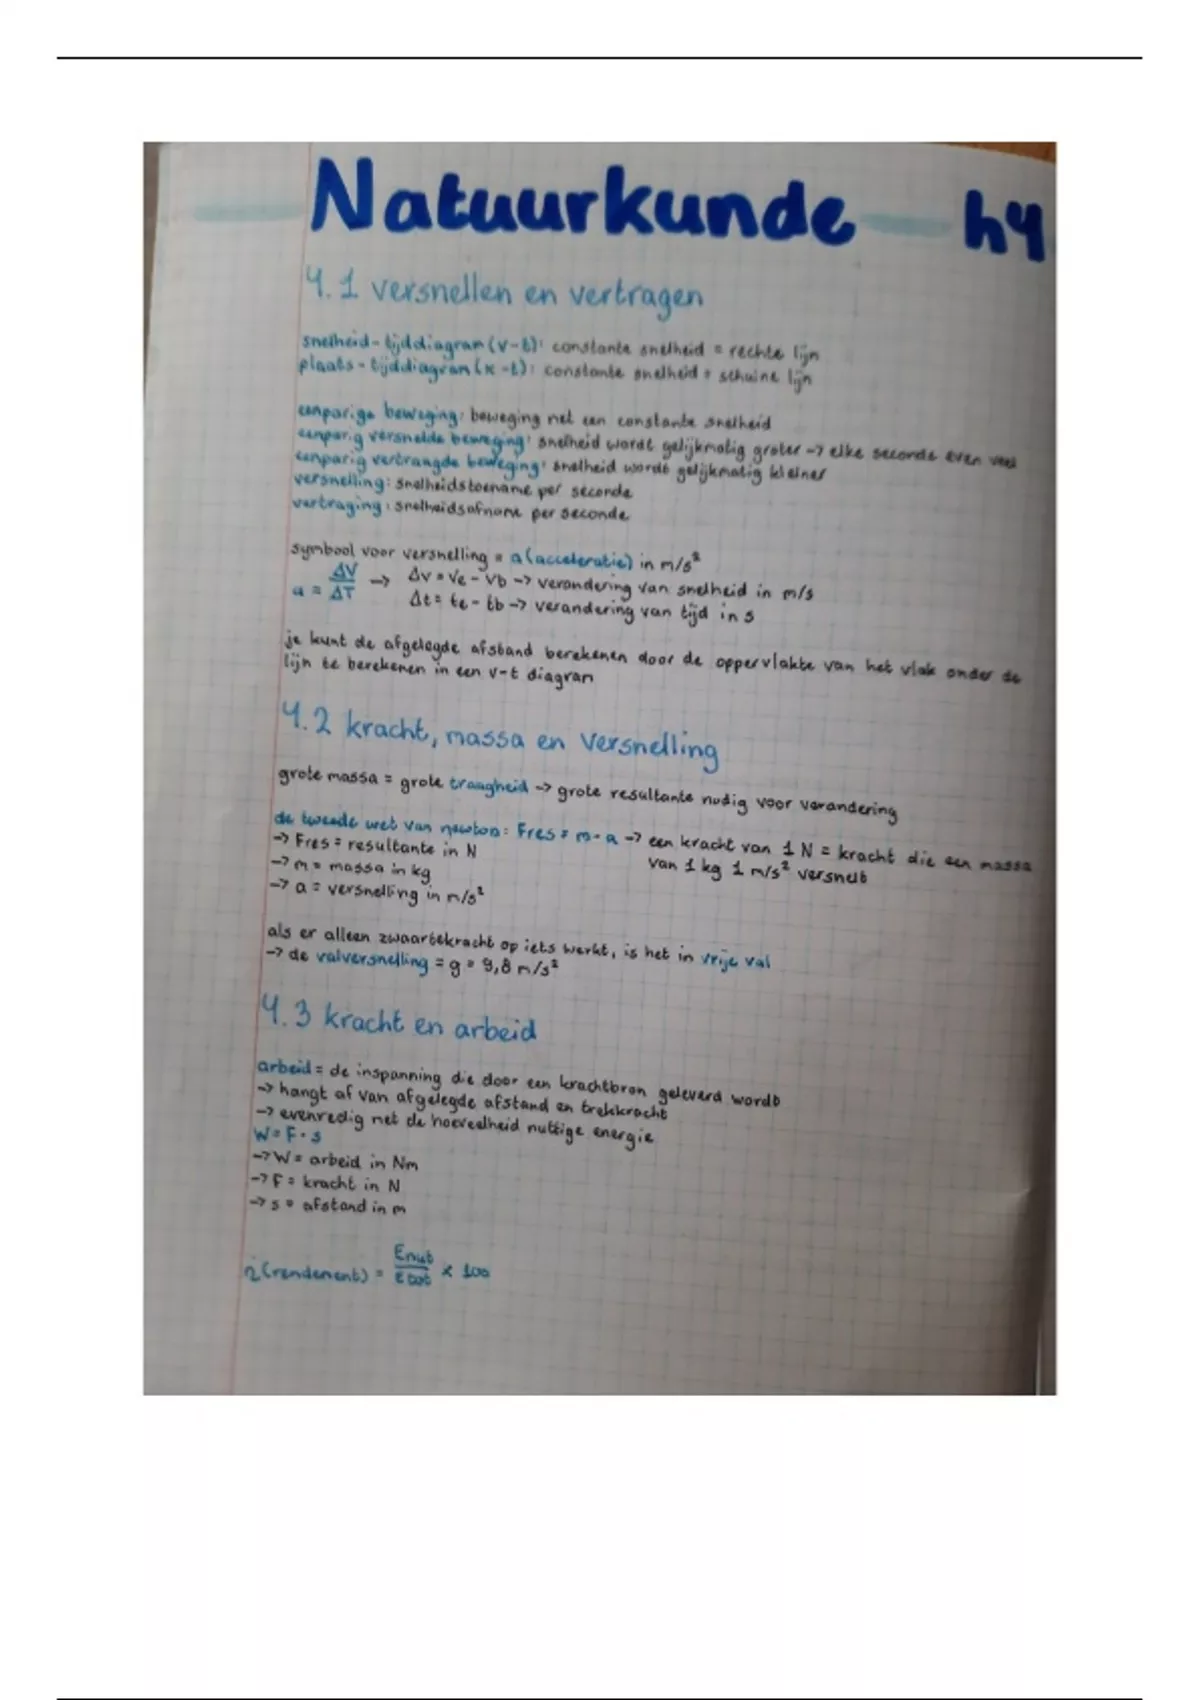 Natuurkunde h4
4.1 versnellen en vertragen
snelheid-tijddiagram (v-t): constante snelheid = rechte lijn
plaats-tijddiagram (x-t): constante snelheid = schuine lijn
eenparige beweging: beweging met een constante snelheid
eenparig versnelde beweging: snelheid wordt gelijkmatig groter -> elke seconde even veel
eenparig vertraagde beweging: snelheid wordt gelijkmatig kleiner
versnelling: snelheidstoename per seconde
vertraging: snelheidsafname per seconde
symbool voor versnelling = a (acceleratie) in m/s²
a = ΔV/ΔT -> Δv = ve - vb -> verandering van snelheid in m/s
Δt = te - tb -> verandering van tijd in s
je kunt de afgelegde afstand berekenen door de oppervlakte van het vlak onder de
lijn te berekenen in een v-t diagram
4.2 kracht, massa en versnelling
grote massa = grote traagheid -> grote resultante nodig voor verandering
de tweede wet van newton: Fres = m·a -> een kracht van 1 N = kracht die een massa
van 1 kg 1 m/s² versnelt
-> Fres = resultante in N
-> m = massa in kg
-> a = versnelling in m/s²
als er alleen zwaartekracht op iets werkt, is het in vrije val
-> de valversnelling = g = 9,8 m/s²
4.3 kracht en arbeid
arbeid = de inspanning die door een krachtbron geleverd wordt
-> hangt af van afgelegde afstand en trekkracht
-> evenredig met de hoeveelheid nuttige energie
W = F·s
-> W = arbeid in Nm
-> F = kracht in N
-> s = afstand in m
(rendement) = Enut/Etot × 100